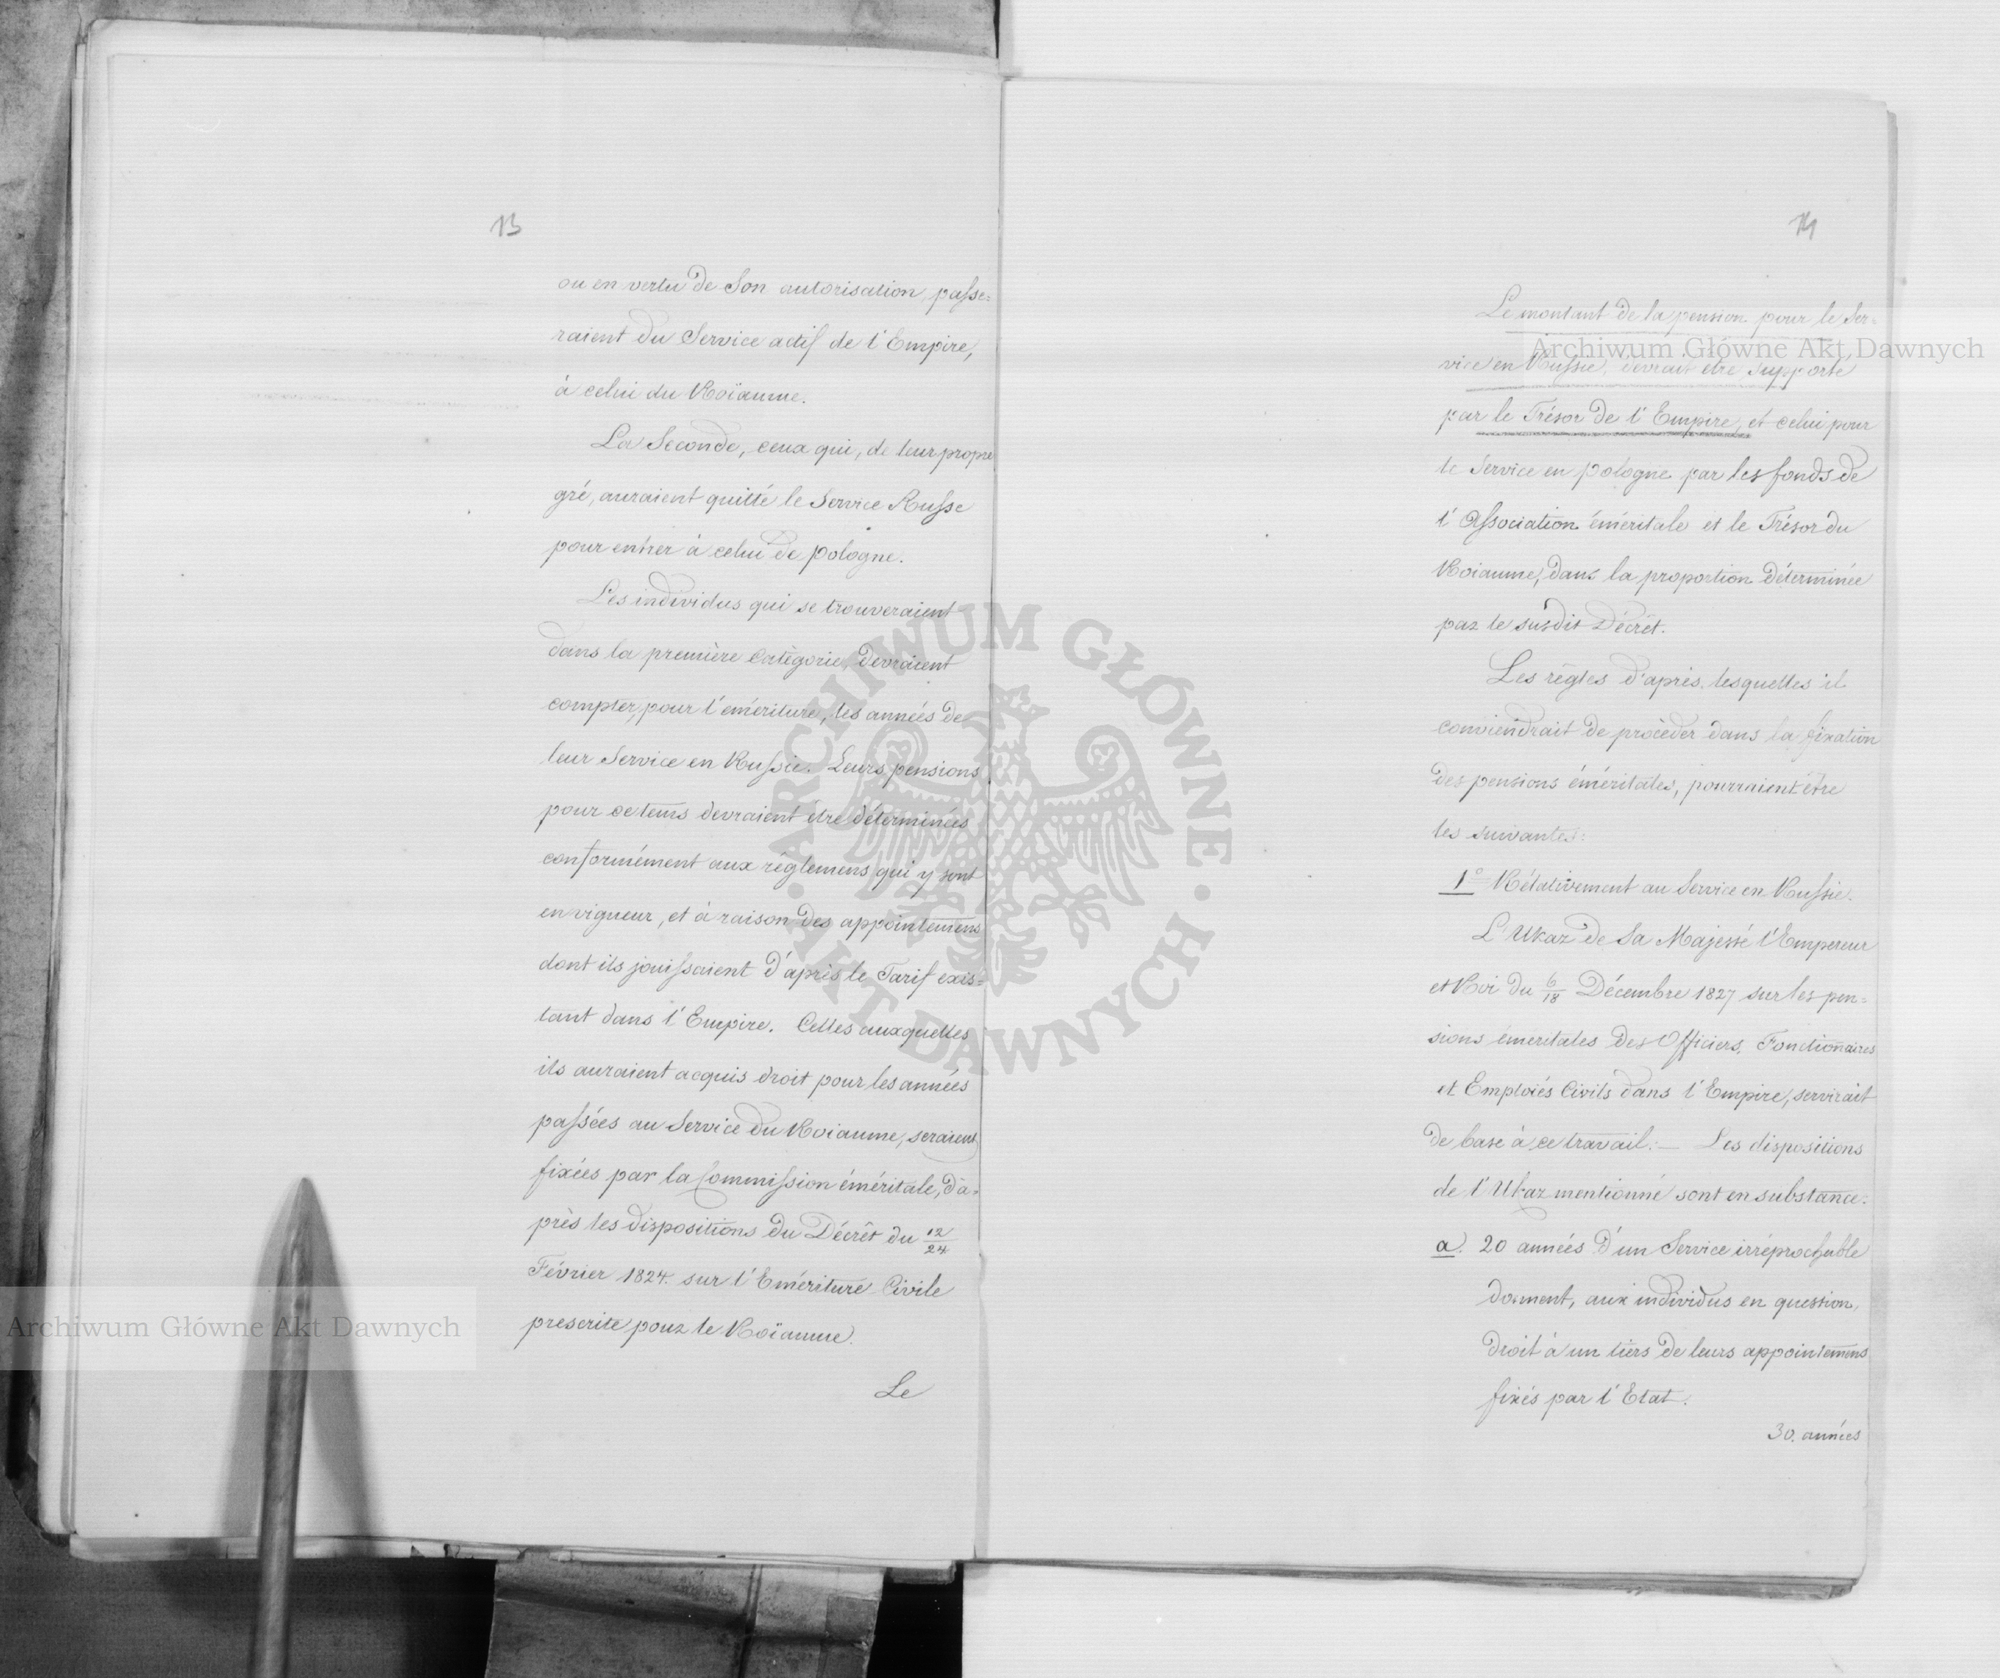 13
ou en vertu de Son autorisation, passe=
raient du Service actif de l'Empire,
à celui du Roïaume.
La Seconde, ceux qui, de leur propre
gré, auraient quitté le Service Russe
pour entrer à celui de Pologne.
Les individus qui se trouveraient
dans la première Catègorie, devraient
compter, pour l'emériture, les années de
leur Service en Russie. Leurs pensions
pour ce tems devraient être déterminées
conformément aux règlemens qui y sont
en vigueur, et à raison des appointemens
dont ils jouissaient d'après le Tarif exis=
tant dans l'Empire. Celles auxquelles
ils auraient acquis droit pour les années
passées au Service du Roiaume, seraient
fixées par la Commission éméritale, d'a=
près les dispositions du Décrêt du 12/24
Février 1824. sur l'Emériture Civile
prescrite pour le Roïaume.
Le
14
Le montant de la pension pour le Ser=
vice en Russie, devrait être supporté
par le Trésor de l'Empire, et celui pour
le Service en Pologne par les fonds de
l'Association éméritale et le Trésor du
Roiaume, dans la proportion déterminée
par le susdit Décrêt.
Les règles d'après lesquelles il
conviendrait de procèder dans la fixation
des pensions éméritales, pourraient être
les suivantes:
1° Rélativement au Service en Russie.
L'Ukaz de Sa Majesté l'Empereur
et Roi du 6/18 Décembre 1827 sur les pen=
sions émeritales des Officiers, Fonctionnaires
et Emploiés Civils dans l'Empire, servirait
de base à ce travail. — Les dispositions
de l'Ukaz mentionné sont en substance:
a. 20 années d'un Service irréprochable
donnent, aux individus en question,
droit à un tiers de leurs appointemens
fixés par l'Etat.
30. années
Archiwum Główne Akt Dawnych
Archiwum Główne Akt Dawnych
ARCHIWUM GŁÓWNE · AKT DAWNYCH ·